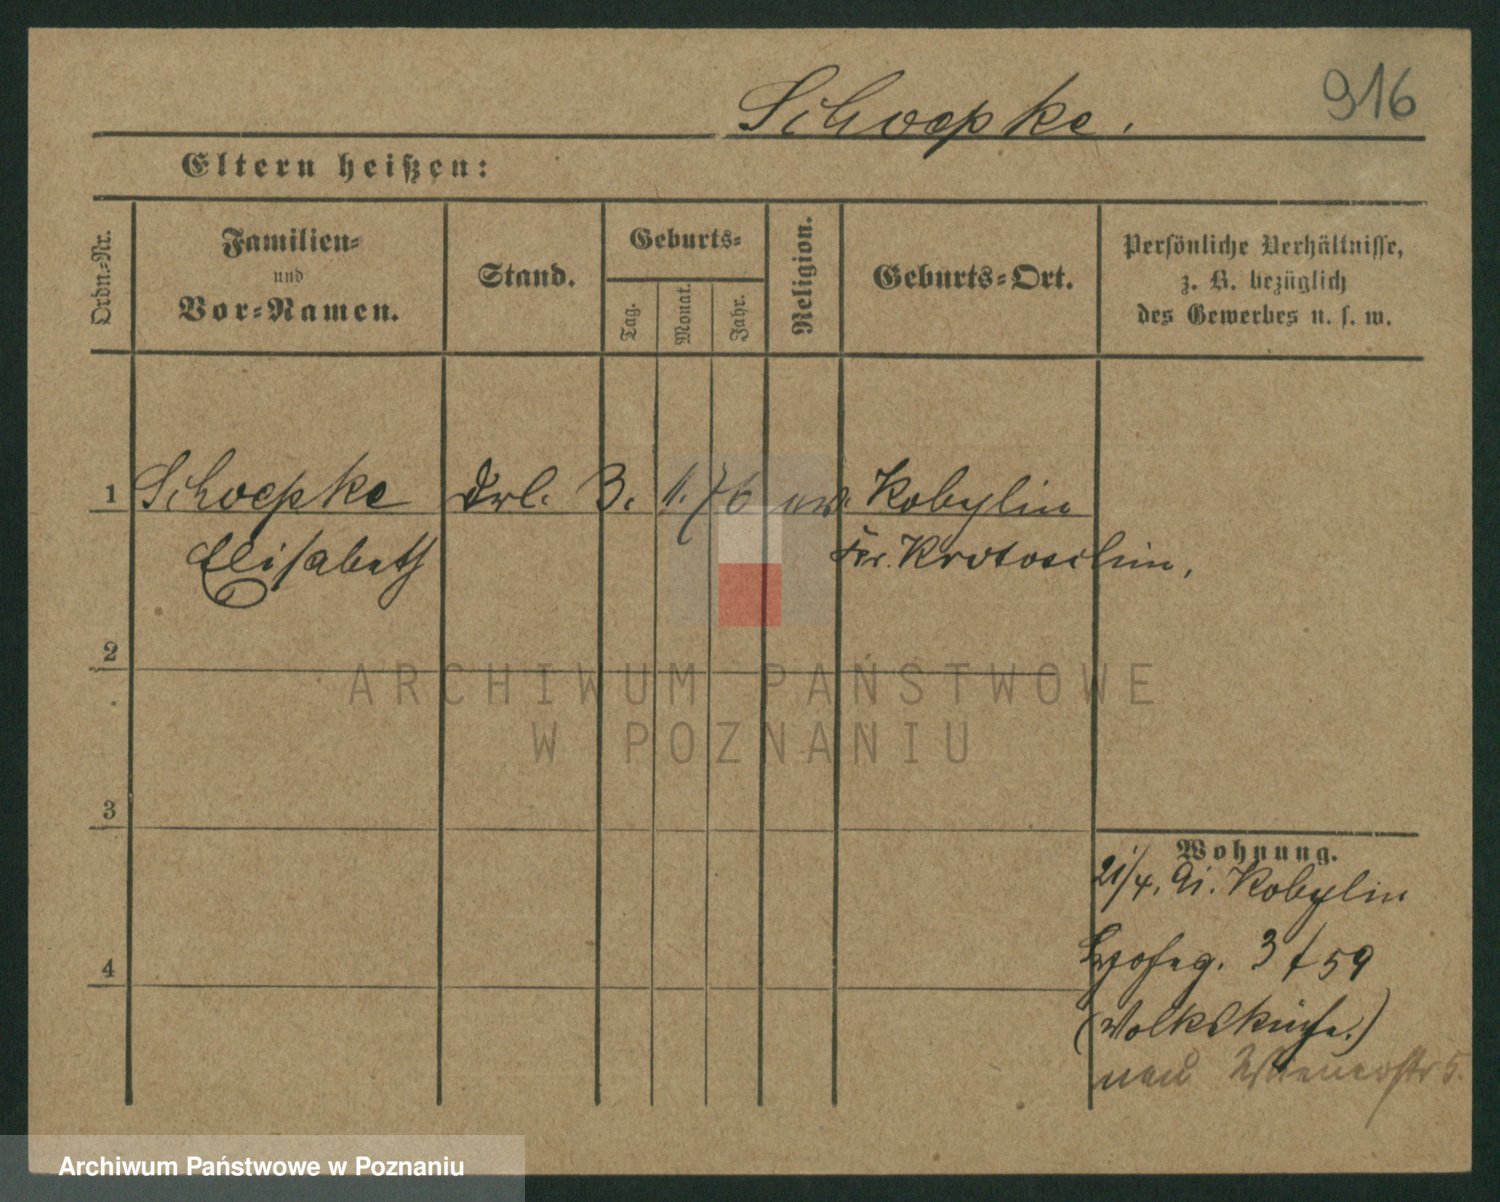 916
Schoepke.
Eltern heißen:
Ordn.-Nr.
Familien-
und
Vor-Namen.
Stand.
Geburts-
Tag.
Monat.
Jahr.
Religion.
Geburts-Ort.
Persönliche Verhältnisse,
z. B. bezüglich
des Gewerbes u. s. w.
1 Schoepke Frl. 3. 1. 76 ev. Kobylin
Elisabeth Kr. Krotoschin,
2
3
4
Wohnung.
21/4. 91. Kobylin
3 / 59
(Volksküche.)
neu 5.
ARCHIWUM PAŃSTWOWE
W POZNANIU
Archiwum Państwowe w Poznaniu